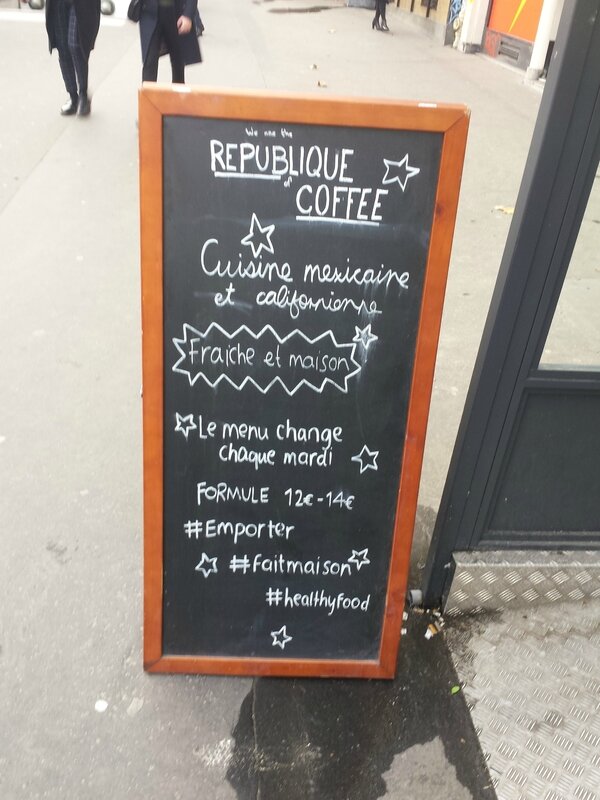 We are the
REPUBLIQUE
of
COFFEE
Cuisine mexicaine
et californienne
Fraîche et maison
Le menu change
chaque mardi
FORMULE 12€-14€
#Emporter
#faitmaison
#healthyfood